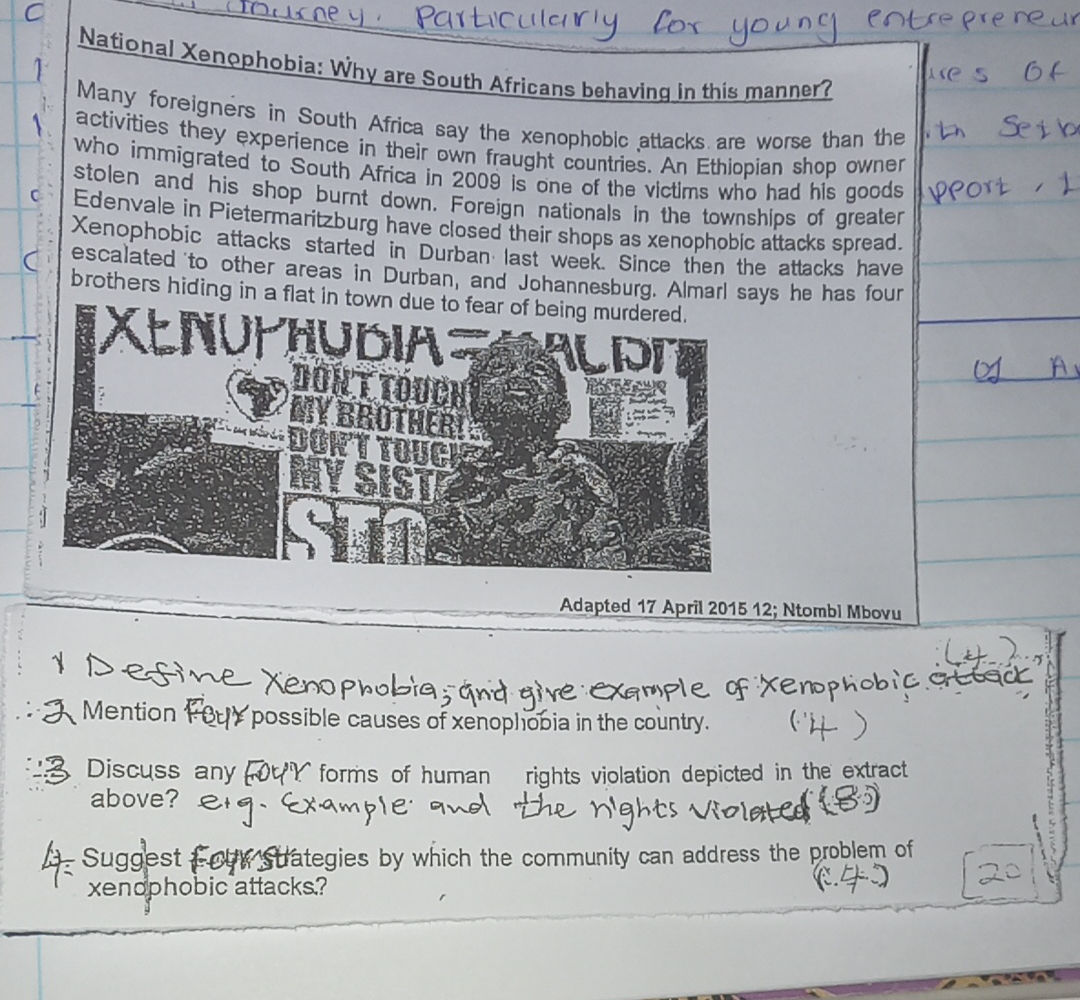 Journey. Particularly for young entrepreneur
National Xenophobia: Why are South Africans behaving in this manner?
of
Many foreigners in South Africa say the xenophobic attacks are worse than the
activities they experience in their own fraught countries. An Ethiopian shop owner
who immigrated to South Africa in 2009 is one of the victims who had his goods
stolen and his shop burnt down. Foreign nationals in the townships of greater
Edenvale in Pietermaritzburg have closed their shops as xenophobic attacks spread.
Xenophobic attacks started in Durban last week. Since then the attacks have
escalated to other areas in Durban, and Johannesburg. Almarl says he has four
brothers hiding in a flat in town due to fear of being murdered.
XENOPHOBIA =
DON'T TOUCH
MY BROTHER!
DON'T TOUCH
MY SIST
STO
Adapted 17 April 2015 12; Ntombi Mbovu
1 Define Xenophobia, and give example of xenophobic attack (4)
2 Mention Four possible causes of xenophobia in the country. (4)
3 Discuss any Four forms of human rights violation depicted in the extract
above? e.g. Example and the rights violated (8)
4. Suggest Four strategies by which the community can address the problem of
xenophobic attacks? (4)
20